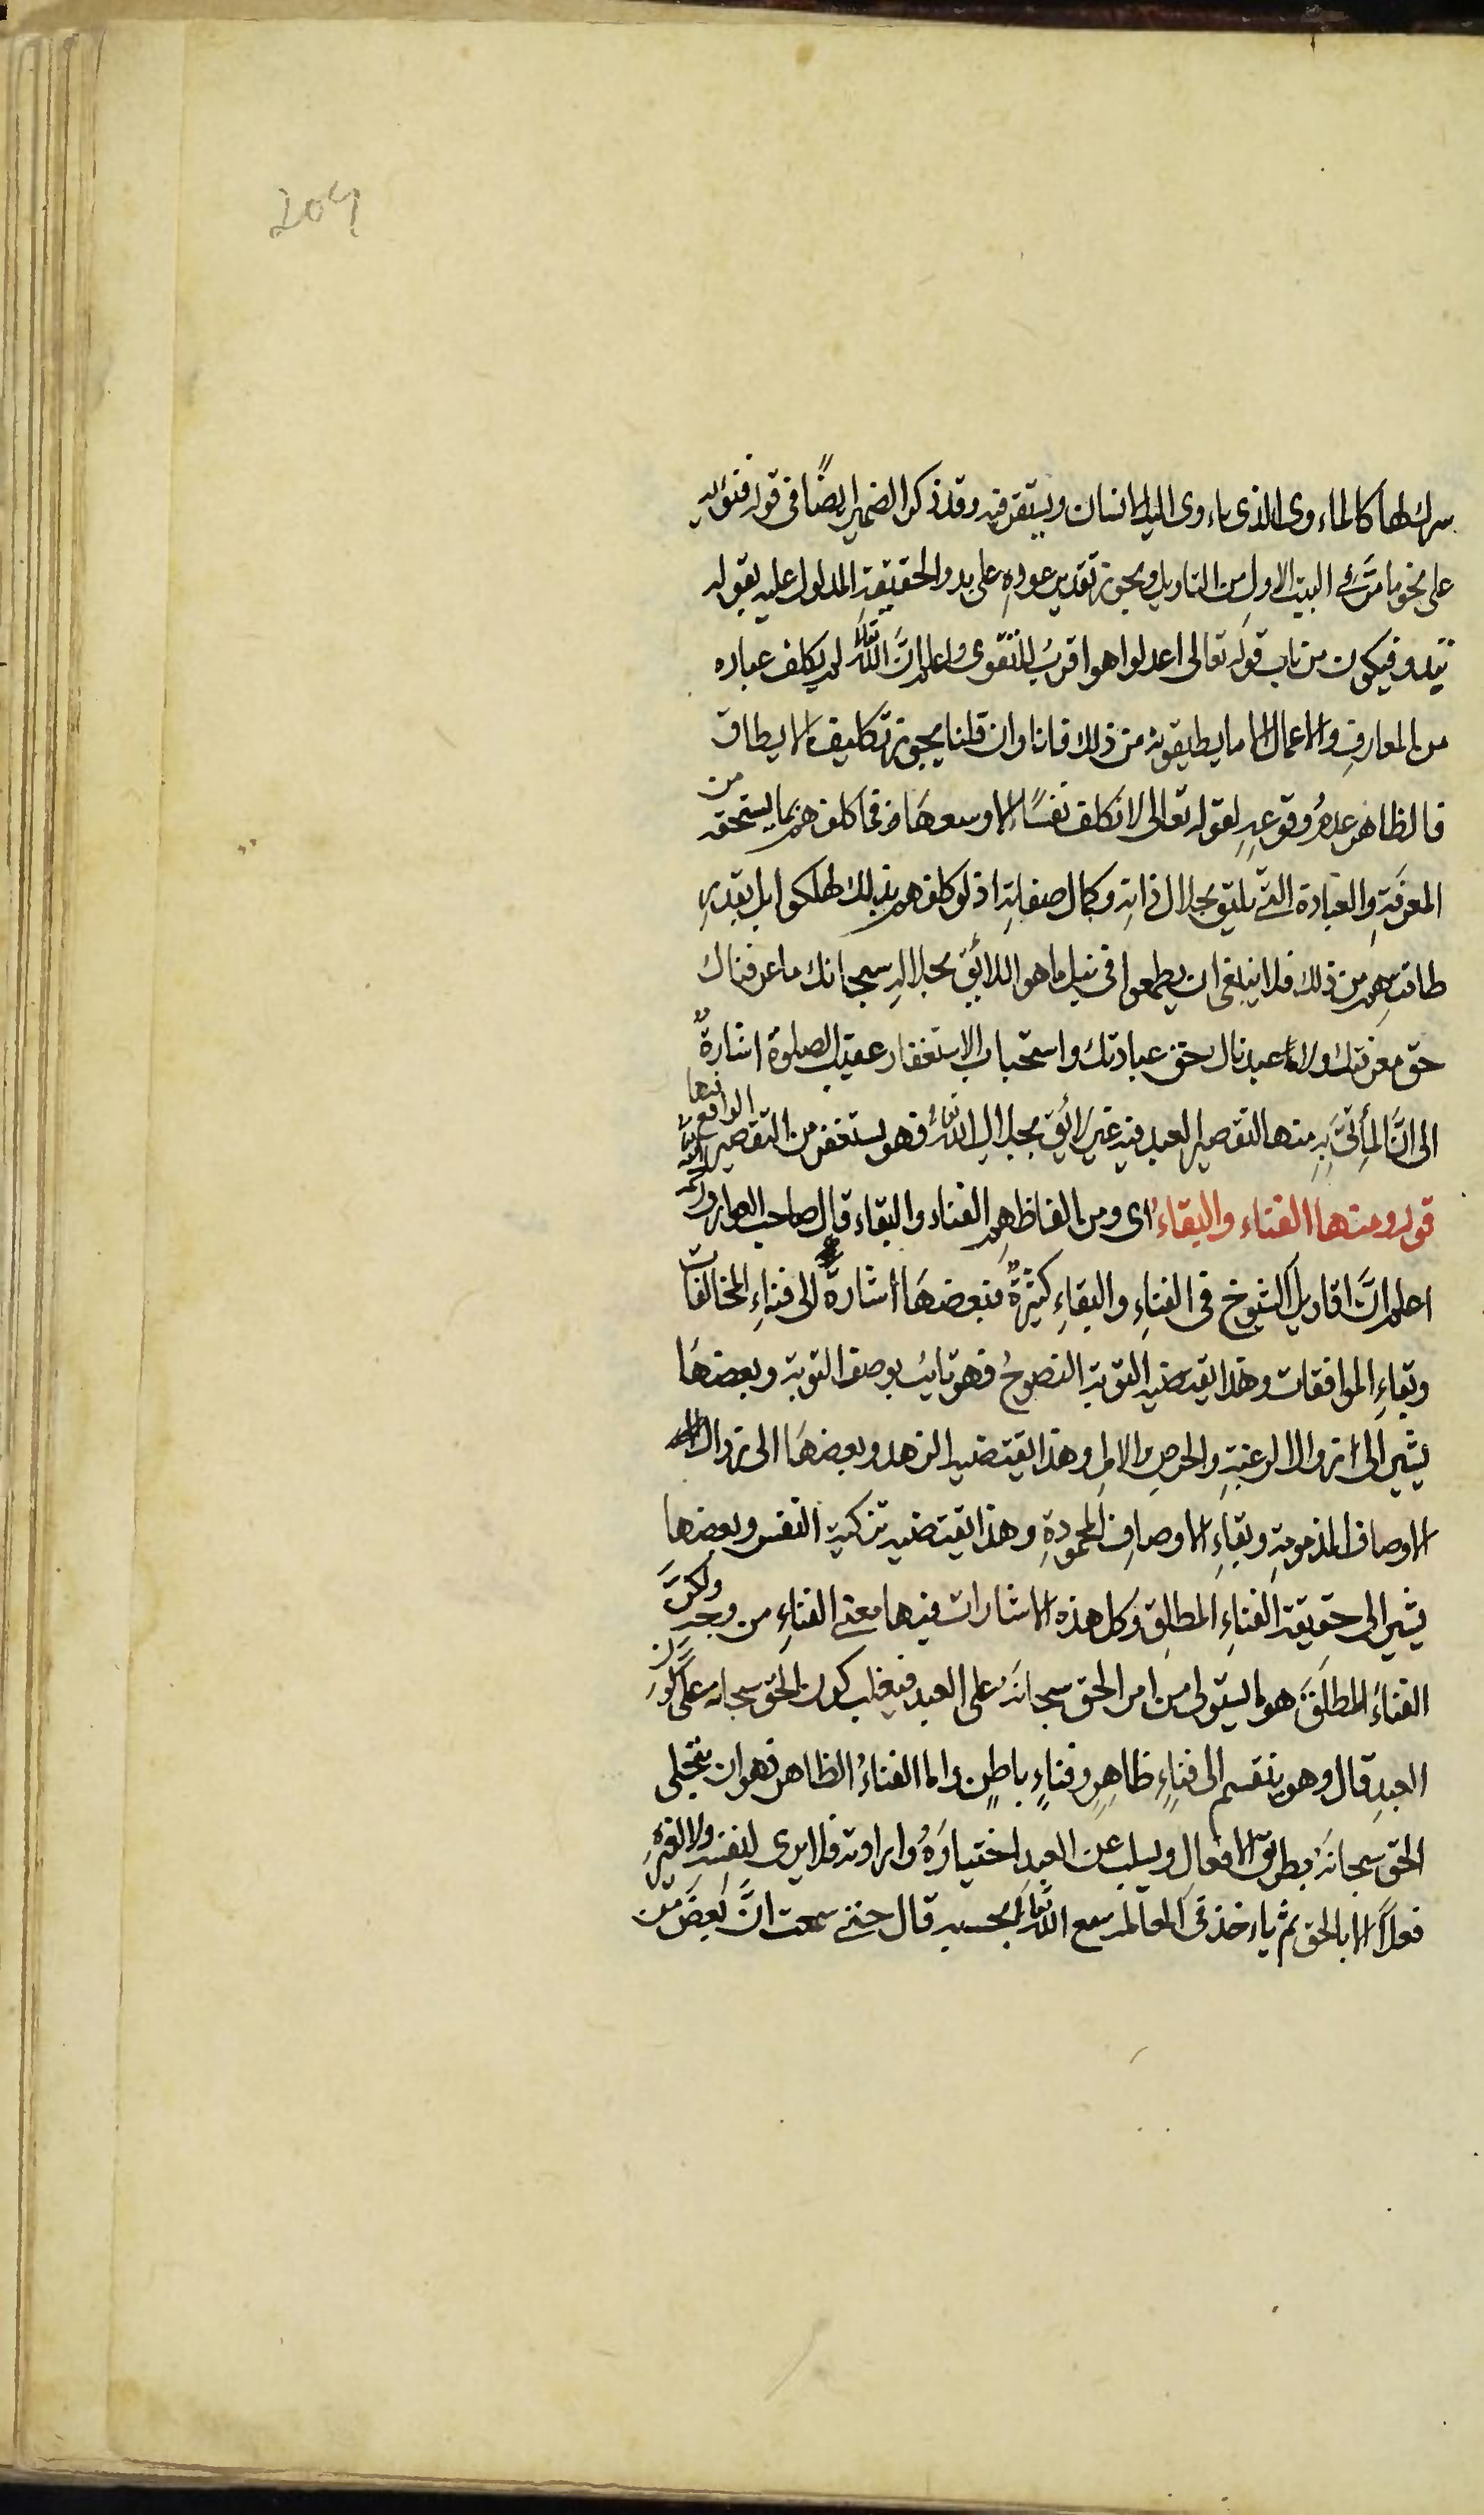 204
سرك لها كالماءوى الذى ياءوى اليه الانسان ويستقر فيه وقد ذكر الضمير ايضًا فى قوله فتؤيه
على نحو ما مرّ فى البيت الاول من التاويل ويجوز تقدير عوده على بدو الحقيقة المدلول عليه بقوله
تبدو فيكون من باب قوله تعالى اعدلوا هو اقرب للتقوى واعلم انّ اللّٰه تعالى لم يكلف عباده
من المعارف والاعمال الا ما يطيقونه من ذلك فانا وان قلنا يجوز تكليف ما لا يطاق
فالظاهر عدم وقوعه لقوله تعالى لا نكلف نفسًا الا وسعها فما كلفهم بما يستحقه من
المعرفة والعبادة التى يليق بجلال ذاته وكمال صفاته اذ لو كلفهم بذلك لهلكوا بل بقدر
طاقتهم من ذلك فلا ينبغى ان يطمعوا فى نيل ما هو اللائق بجلاله سبحانك ما عرفناك
حق معرفتك ولا ما عبدناك حق عبادتك واستحباب الاستغفار عقيب الصلوة اشارةٌ
الى انّ المأتىّ به منها لتقصير العبد فيه غير لائق بجلال اللّٰه تعالى فهو يستغفر من التقصير الواقع فيها
قوله ومنها الفناء والبقاء اى ومن الفاظهم الفناء والبقاء قال صاحب العوارف
اعلم انّ اقاويل الشيوخ فى الفناءِ والبقاءِ كثيرةٌ فبعضها اشارة الى فناءِ المخالفات
وبقاءِ الموافقات وهذا يقتضيه التوبة النصوحُ فهو ثابت بوصف التوبة وبعضها
يشير الى زوال الرغبةِ والحرصِ والاملِ وهذا يقتضيه الزهد وبعضها الى زوال
الاوصاف المذمومةِ وبقاءِ الاوصافِ المحمودةِ وهذا يقتضيه تزكية النفس وبعضها
يشير الى حقيقة الفناءِ المطلق وكل هذه الاشارات فيها معنى الفناءِ من وجهٍ ولكنّ
الفناءَ المطلقَ هو ما يستولى من امر الحق سبحانهُ على العبد فيغلب كون الحق سبحانه على كون
العبدِ قال وهو ينقسم الى فناءٍ ظاهرٍ وفناءٍ باطنٍ واما الفناءُ الظاهر فهو ان يتجلى
الحق سبحانهُ بطريق الافعال ويسلب عن العبد اختيارهُ وارادته فلا يرى لنفسهِ ولا لغيرهِ
فعلاً الا بالحق ثم ياءخذ فى المعاملة مع اللّٰه تعالى بحسبه قال حتى سمعت انّ بعضَ من